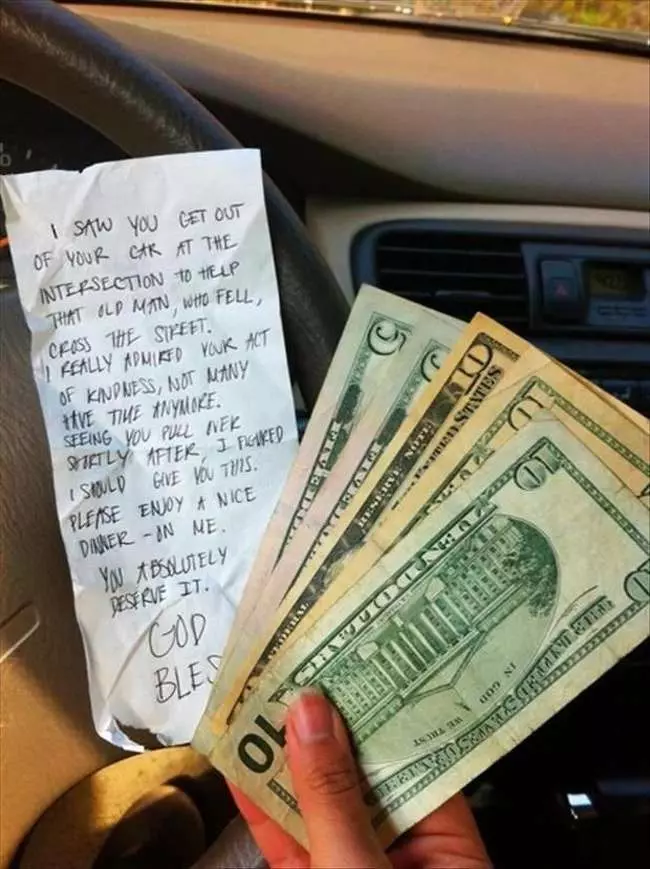 I SAW YOU GET OUT
OF YOUR CAR AT THE
INTERSECTION TO HELP
THAT OLD MAN, WHO FELL,
CROSS THE STREET.
I REALLY ADMIRED YOUR ACT
OF KINDNESS, NOT MANY
HAVE TIME ANYMORE.
SEEING YOU PULL OVER
SHORTLY AFTER, I FIGURED
I SHOULD GIVE YOU THIS.
PLEASE ENJOY A NICE
DINNER - ON ME.
YOU ABSOLUTELY
DESERVE IT.
GOD
BLES
10
IN GOD
WE TRUST
10